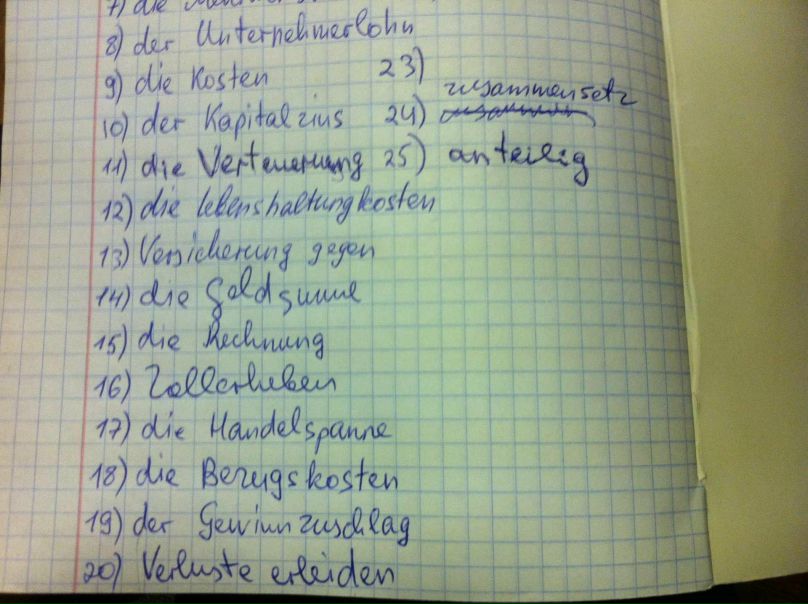 7) die
8) der Unternehmerlohn
9) die Kosten
10) der Kapitalzins
11) die Verteuerung
12) die lebenshaltungkosten
13) Versicherung gegen
14) die Geldsumme
15) die Rechnung
16) Zollerheben
17) die Handelspanne
18) die Bezugskosten
19) der Gewinnzuschlag
20) Verluste erleiden
23)
24) zusammensetz
25) anteilig